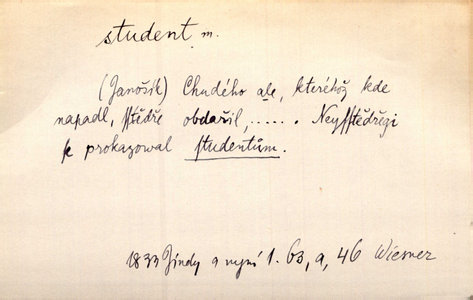 student m.
(Janošík) Chudého ale, kteréhož kde
napadl, sstědře obdařil, ...... . Neysstědřegi
se prokazowal studentům.
1833 Jindy a nyní 1. 63, a, 46 Wiesner